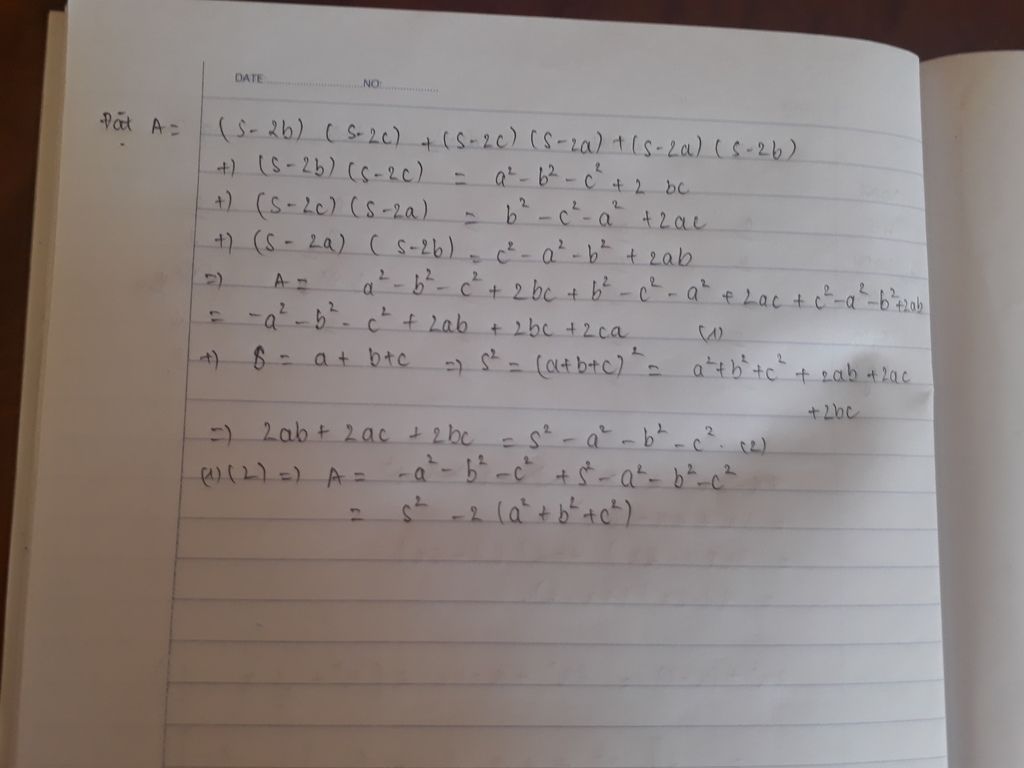 DATE NO
Đặt A = (S-2b) (S-2c) + (S-2c) (S-2a) + (S-2a) (S-2b)
+) (S-2b) (S-2c) = a² - b² - c² + 2 bc
+) (S-2c) (S-2a) = b² - c² - a² + 2ac
+) (S - 2a) (S-2b) = c² - a² - b² + 2ab
=> A = a² - b² - c² + 2bc + b² - c² - a² + 2ac + c² - a² - b² + 2ab
= -a² - b² - c² + 2ab + 2bc + 2ca (1)
+) S = a + b+c => S² = (a+b+c)² = a²+b²+c² + 2ab + 2ac
+2bc
=> 2ab + 2ac + 2bc = S² - a² - b² - c². (2)
(1) (2) => A = -a² - b² - c² + S² - a² - b² - c²
= S² - 2 (a² + b² + c²)